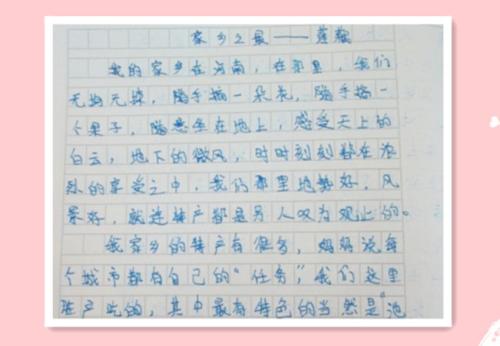 家乡之最——莲鞭
我的家乡在河南，在那里，我们
无拘无束，随手摘一朵花，随手摘一
个果子，随意坐在地上，感受天上的
白云，地下的微风，时时刻刻都在浓
烈的享受之中，我们那里地势好，风
景好，就连特产都是另人叹为观止的。
我家乡的特产有很多，妈妈说每
个城市都有自己的“任务”，我们这里
生产吃的，其中最有特色的当然是“泡